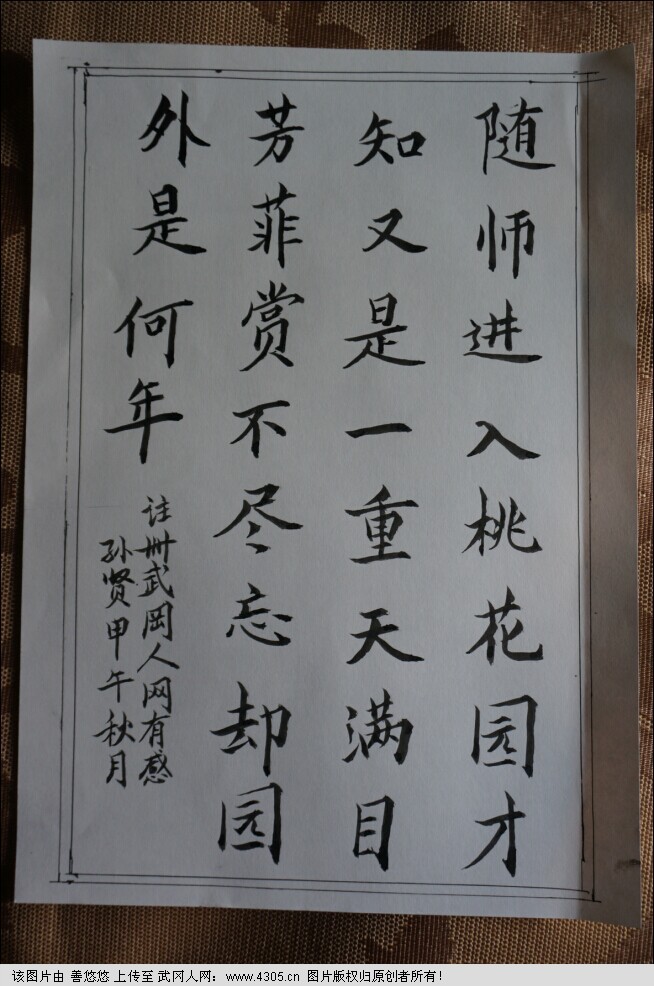 随师进入桃花园才
知又是一重天满目
芳菲赏不尽忘却园
外是何年
注册武冈人网有感
孙贤甲午秋月
该图片由 善悠悠 上传至 武冈人网：www.4305.cn 图片版权归原创者所有！